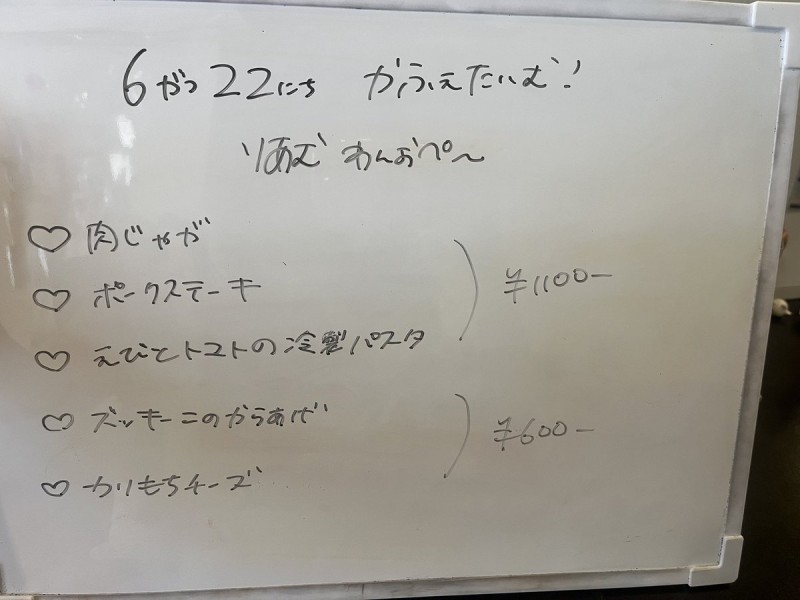 6がつ22にち かふぇたいむ!
りあむ わんおぺ〜
♡ 肉じゃが
♡ ポークステーキ
♡ えびとトマトの冷製パスタ
¥1100−
♡ ズッキーニのからあげ
♡ かりもちチーズ
¥600−